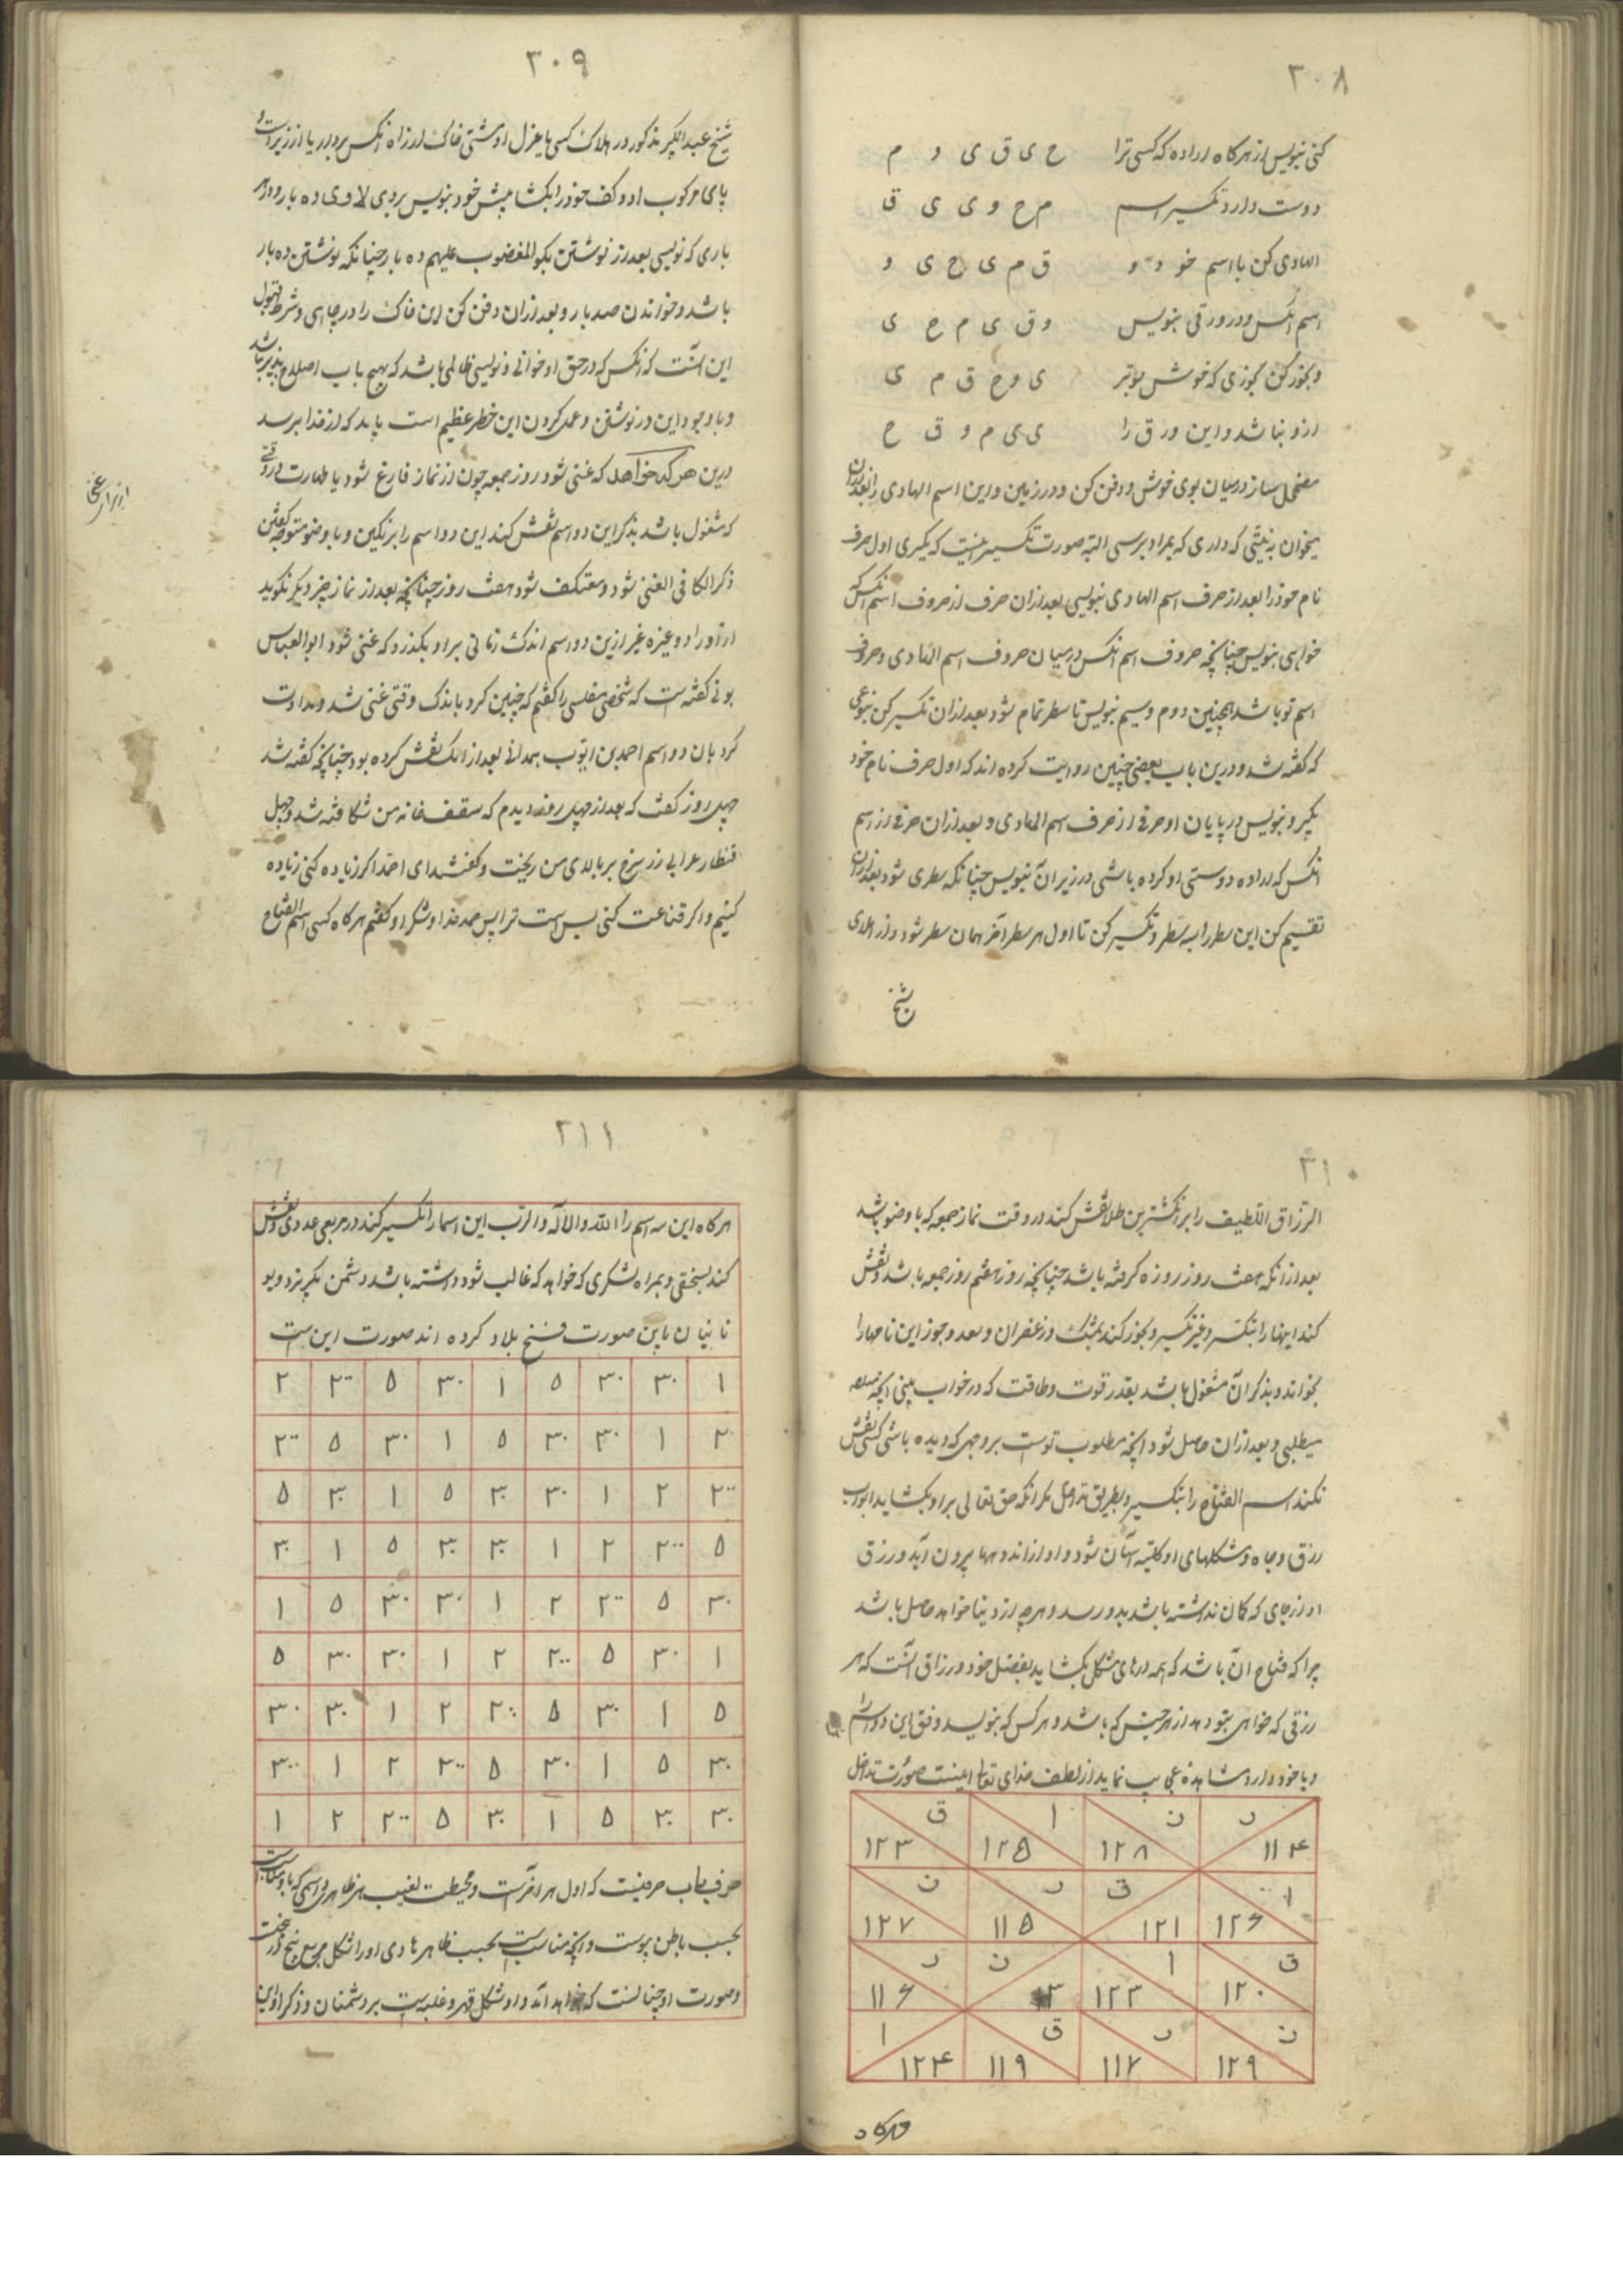 ۳۰۸
کنی بنویس از هرکاه اراده که کسی ترا ح ی ق ی و م
دوست دارد تکسیر اسم م ح و ی ی ق
الهادی کن با اسم خود و ق م ی ح ی و
اسم انکس و در ورقی بنویس و ق ی م ح ی
و بخور کن بخوری که خوش بوتر ی و ح ق م ی
ازو نباشد و این ورق را ی ی م و ق ح
مضمحل ساز در میان بوی خوش و دفن کن و در زمین و این اسم الهادی را بعد ازان
میخوان به نیتی که داری که بمراد برسی البته صورت تکسیر اینست که بکیری اول حرف
نام خود را بعد از حرف اسم الهادی بنویسی بعد ازان حرف از حروف اسم انکس که
خواهی بنویس چنانچه حروف اسم انکس در میان حروف اسم الهادی و حروف
اسم تو باشد همچنین دوم و سیم بنویس تا سطر تمام شود بعد ازان تکسیر کن بنوعی
که کفته شد و درین باب بعضی چنین روایت کرده اند که اول حرف نام خود
بکیر و بنویس در پایان او حرفی از حرف اسم الهادی و بعد ازان حرفی از اسم
انکس که اراده دوستی او کرده باشی در زیر آن بنویس چنانکه سطری شود بعد ازان
تقسیم کن این سطر را به سطر و تکسیر کن تا اول هر سطر آخر همان سطر شود و از املای
شیخ
۳۰۹
شیخ عبد الکبیر مذکور در هلاک کسی یا عزل او مشتی خاک از راه انکس بردار یا از زیر دست و
پای مرکوب او و کف خود را بکشا پیش خود بنویس بروی لا وی ده بار و در هر
باری که نویسی بعد از نوشتن بکو المغضوب علیهم ده بار چنانکه نوشتن ده بار
باشد و خواندن صد بار و بعد ازان دفن کن این خاک را در چاهی و شرط قبول
این آنست که انکس که در حق او خوانی و نویسی ظالمی باشد که بهیچ باب اصلاح پذیر نباشد
و با وجود این در نوشتن و عمل کردن این خطر عظیم است باید که از خدا بترسد
درین هر که خواهد که غنی شود روز جمعه چون از نماز فارغ شود با طهارت در وقتی
که مشغول باشد بذکر این دو اسم نقش کند این دو اسم را بر نکین و با وضو متوجه کفتن
ذکر الکافی الغنی شود و معتکف شود هفت روز چنانچه بعد از نماز چیز دیکر نکوید
از اوراد و غیره غیر ازین دو اسم اندک زمانی برو بکذرد که غنی شود ابو العباس
بونی کفته است که شخصی مفلسی را کفتم که چنین کرد باندک وقتی غنی شد و مداومت
کرد بان دو اسم احمد بن ایوب همدانی بعد از انک نقش کرده بود چنانچه کفته شد
چهل روز کفت که بعد از چهل روز دیدم که سقف خانه من شکافته شد و چهل
قنطار طلا یی زر سرخ بر بالای من ریخت و کفتند ای احمد اکر زیاده کنی زیاده
کنیم و اکر قناعت کنی بس است ترا پس حمد خدا و شکر او کفتم هرکاه کسی اسم الفتاح
۳۱۰
الرزاق اللطیف را بر انکشترین طلا نقش کند در وقت نماز جمعه که با وضو باشد
بعد از انکه هفت روز روزه کرفته باشد چنانچه روز هفتم روز جمعه باشد و نقش
کند اینها را بتکسیر و غیر تکسیر و بخور کند بمشک و زعفران و بعد و جوز این نامها را
بخواند و بذکر آن مشغول باشد بقدر قوت و طاقت که در خواب بینی انچه
میطلبی و بعد ازان حاصل شود انچه مطلوب تو است بر وجهی که دیده باشی کسی نقش
نکند اسم الفتاح را بتکسیر و بطریق تداخل مکر انکه حق تعالی برو بکشاید ابواب
رزق و جاه و مشکلهای او کلیه آسان شود و او از اندوهها بیرون آید و رزق
او از جای که کمان نداشته باشد بدو رسد و هرچه از دنیا خواهد حاصل باشد
چرا که فتاح آن باشد که همه درهای مشکل بکشاید بفضل خود و رزاق آنست که هر
رزقی که خواهی بتو دهد از هر جنس که باشد و هر کس که بنویسد وفق این دو اسم را
و با خود دارد مشاهده عجایب نماید از لطف خدای تعالی اینست صورت تداخل
ر ۱۱۴ ن ۱۲۸ ا ۱۲۵ ق ۱۲۳
ا ۱۲۶ ق ۱۲۱ ر ۱۱۵ ن ۱۲۷
ق ۱۲۰ ا ۱۲۳ ن ۳ ر ۱۱۶
ن ۱۲۹ ر ۱۱۷ ق ۱۱۹ ا ۱۲۴
هرکاه
۳۱۱
هرکاه این سه اسم را الله و الاله و الرب این اسما را تکسیر کند در مربعی عددی و نقش
کند بسختی و همراه لشکری که خواهد که غالب شود داشته باشد دشمن بکریزد و یو
نانیان باین صورت فتح بلاد کرده اند صورت این است
۱ ۳۰ ۳۰ ۵ ۱ ۳۰ ۵ ۲۰۰ ۲
۲ ۱ ۳۰ ۳۰ ۵ ۱ ۳۰ ۵ ۲۰۰
۲۰۰ ۲ ۱ ۳۰ ۳۰ ۵ ۱ ۳۰ ۵
۵ ۲۰۰ ۲ ۱ ۳۰ ۳۰ ۵ ۱ ۳۰
۳۰ ۵ ۲۰۰ ۲ ۱ ۳۰ ۳۰ ۵ ۱
۱ ۳۰ ۵ ۲۰۰ ۲ ۱ ۳۰ ۳۰ ۵
۵ ۱ ۳۰ ۵ ۲۰۰ ۲ ۱ ۳۰ ۳۰
۳۰ ۵ ۱ ۳۰ ۵ ۲۰۰ ۲ ۱ ۳۰۰
۳۰ ۳۰ ۵ ۱ ۳۰ ۵ ۲۰۰ ۲ ۱
حرفیست که اول هر آخر است و محیطست بغیب هر ظاهر
بحسب باطن پوست و انچه مناسبت بحسب ظاهر هادی او را شکل مربع پنج در
و صورت او چنانست که خواهد آمد و او شکل قهر و غلبه است بر دشمنان و ذکر او این